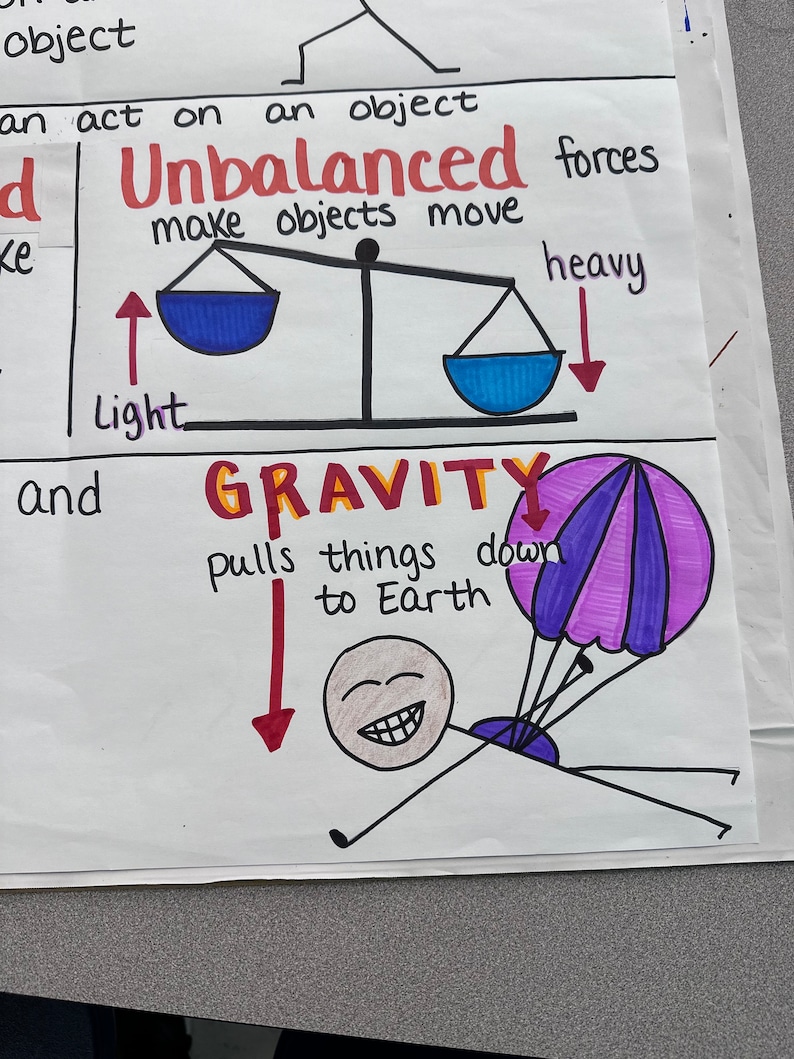 object
an act on an object
d
Unbalanced forces
ke
make objects move
heavy
light
and
GRAVITY
pulls things down
to Earth